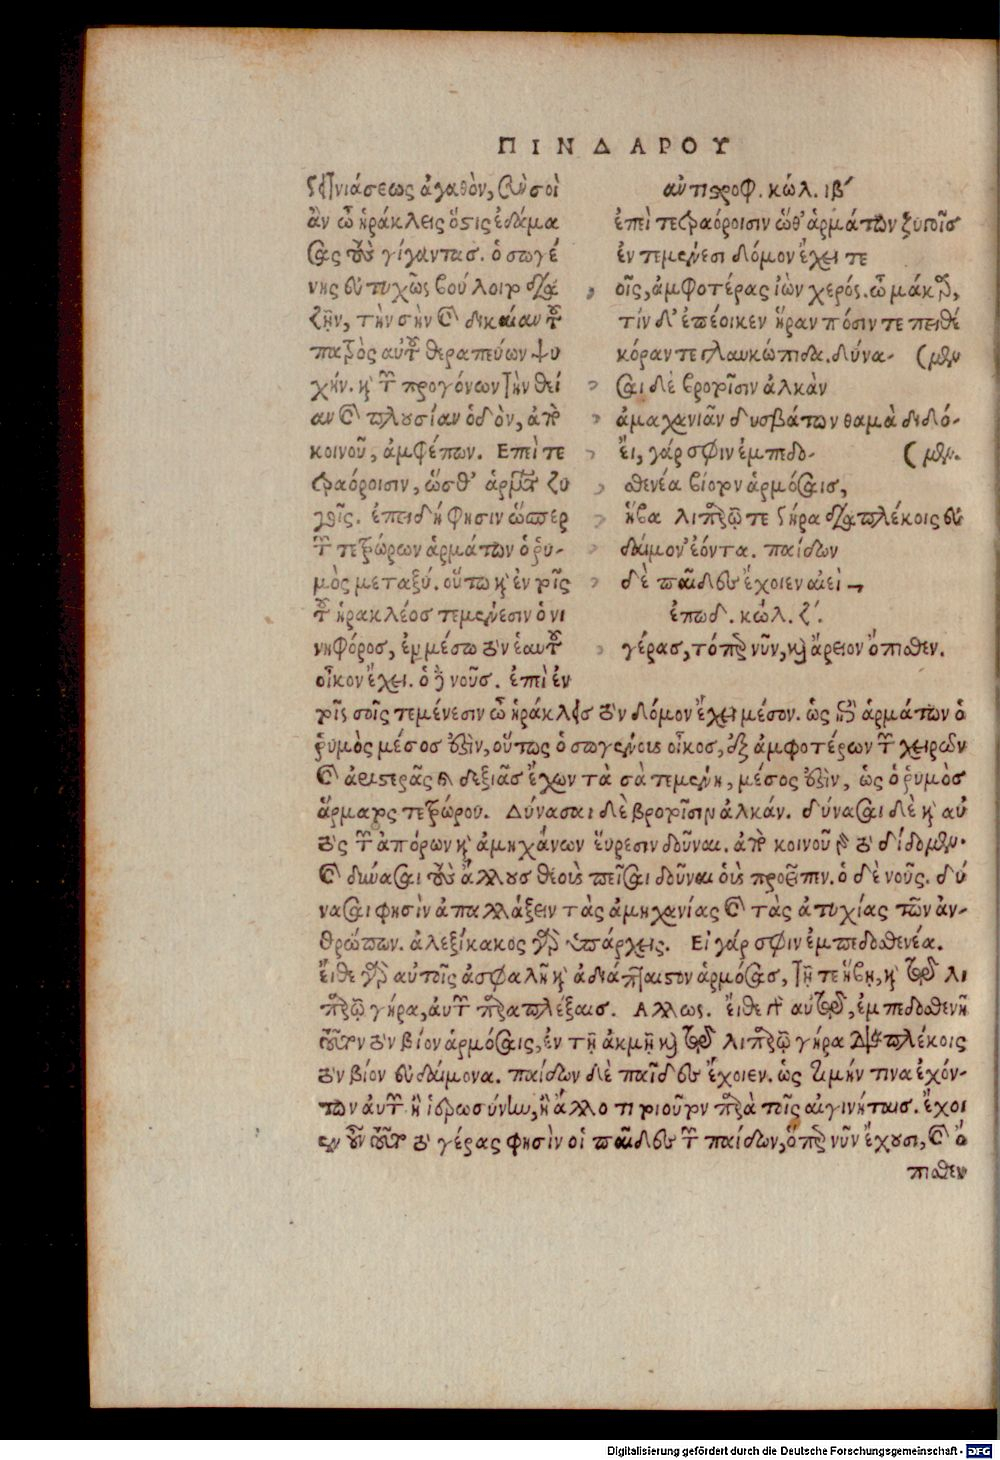 ΠΙΝΔΑΡΟΥ
γειτνιάσεως ἀγαθὸν, σὺν σοὶ
ἂν ὦ ἡράκλεις ὅστις ἐδάμα
σας τοὺς γίγαντας. ὁ σωγέ
νης εὐτυχῶς βούλοιτο δια
ζῆν, τὴν σὴν καὶ δικαίαν τοῦ
πατρὸς αὐτοῦ θεραπεύων ψυ
χήν. καὶ τῶν προγόνων τὴν θεί
αν καὶ πλουσίαν ὁδὸν, ἀπὸ
κοινοῦ, ἀμφέπων. Επεὶ τε
τραόροισιν, ὥσθ' ἁρμάτων ζυ
γοῖς. ἐπειδή φησιν ὥσπερ
τῶν τετρώρων ἁρμάτων ὁ ῥυ-
μὸς μεταξύ. οὕτω καὶ ἐν τοῖς
τοῦ ἡρακλέος τεμένεσιν ὁ νι
κηφόρος, ἐμμέσω τὸν ἑαυτοῦ
οἶκον ἔχει. ὁ δὲ νοῦς. ἐπεὶ ἐν
αντιστροφ. κώλ. ιβ´
ἐπεὶ τετραόροισιν ὥθ' ἁρμάτων ζυγοῖς
ἐν τεμένεσι δόμον ἔχει τε
οῖς, ἀμφοτέρας ἰὼν χερός. ὦ μάκαρ,
τὶν δ' ἐπέοικεν ἥραν πόσιν τε πειθέ
κόραν τε γλαυκώπιδα. δύνα- (μεν
σαι δὲ βροτοῖσιν ἀλκὰν
ἀμαχανιᾶν δυσβάτων θαμὰ διδό-
εἴ, γάρ σφιν ἐμπεδο- (μεν.
σθενέα βίοτον ἁρμόσαις,
ἥβα λιπαρῷ τε γήρα διαπλέκοις εὐ
δαίμον' ἐόντα. παίδων
δὲ παῖδες ἔχοιεν αἰεὶ
ἐπωδ. κώλ. ζ´.
γέρας, τόπερ νῦν, καὶ ἄρειον ὄπισθεν.
τοῖς σοῖς τεμένεσιν ὦ ἡράκλεις τὸν δόμον ἔχει μέσον. ὡς γὰρ ἁρμάτων ὁ
ῥυμὸς μέσος ἐστὶν, οὕτως ὁ σωγένους οἶκος, ἐξ ἀμφοτέρων τῶν χειρῶν
καὶ ἀριστερᾶς καὶ δεξιᾶς ἔχων τὰ σὰ τεμένη, μέσος ἐστὶν, ὡς ὁ ῥυμὸς
ἅρματος τετρώρου. Δύνασαι δὲ βροτοῖσιν ἀλκάν. δύνασαι δὲ καὶ αὐ
τὸς τῶν ἀπόρων καὶ ἀμηχάνων εὕρεσιν δοῦναι. ἀπὸ κοινοῦ γὰρ τὸ διδόμεν.
καὶ δύνασαι τοὺς ἄλλους θεοὺς πεῖσαι δοῦναι οἱὺς προεῖπεν. ὁ δὲ νοῦς. δύ
νασαι φησὶν ἀπαλλάξειν τὰς ἀμηχανίας καὶ τὰς ἀτυχίας τῶν ἀν-
θρώπων. ἀλεξίκακος γὰρ ὑπάρχεις. Εἰ γάρ σφιν ἐμπεδοσθενέα.
εἴθε γὰρ αὐτοῖς ἀσφαλῆ καὶ ἀδιάπταιστον ἁρμόσας, τῇ τε ἥβῃ, καὶ τῷ λι
παρῷ γήρα, αὐτῶν παραπλέξαις. Αλλως. εἴθε γὰρ αὐτῷ, ἐμπεδοσθενῆ
τοῦτον τὸν βίον ἁρμόσαις, ἐν τῇ ἀκμῇ καὶ τῷ λιπαρῷ γήρα διαπλέκοις
τὸν βίον εὐδαίμονα. παίδων δὲ παῖδες ἔχοιεν. ὡς τιμήν τινα ἐχόν-
των αὐτῶν ἢ ἱερωσύνην, ἢ ἄλλο τι τοιοῦτον παρὰ τοῖς αἰγινήταις. ἔχοι
εν οὖν τοῦτο τὸ γέρας φησὶν οἱ παῖδες τῶν παίδων, ὅπερ νῦν ἔχουσι, καὶ ὄ
πισθεν
Digitalisierung gefördert durch die Deutsche Forschungsgemeinschaft - DFG